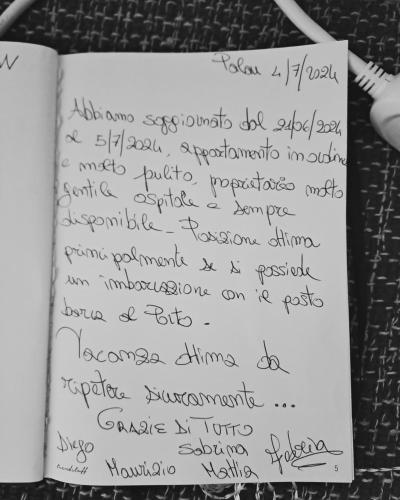 Palau 4/7/2024
Abbiamo soggiornato dal 21/06/2024
al 5/7/2024, appartamento in ordine
e molto pulito, proprietario molto
gentile ospitale e sempre
disponibile - Posizione ottima
principalmente se si possiede
un imbarcazione con il posto
barca al Porto.
Vacanza ottima da
ripetere sicuramente ...
GRAZIE DI TUTTO
Diego Sabrina Federica
Maurizio Mattia
5